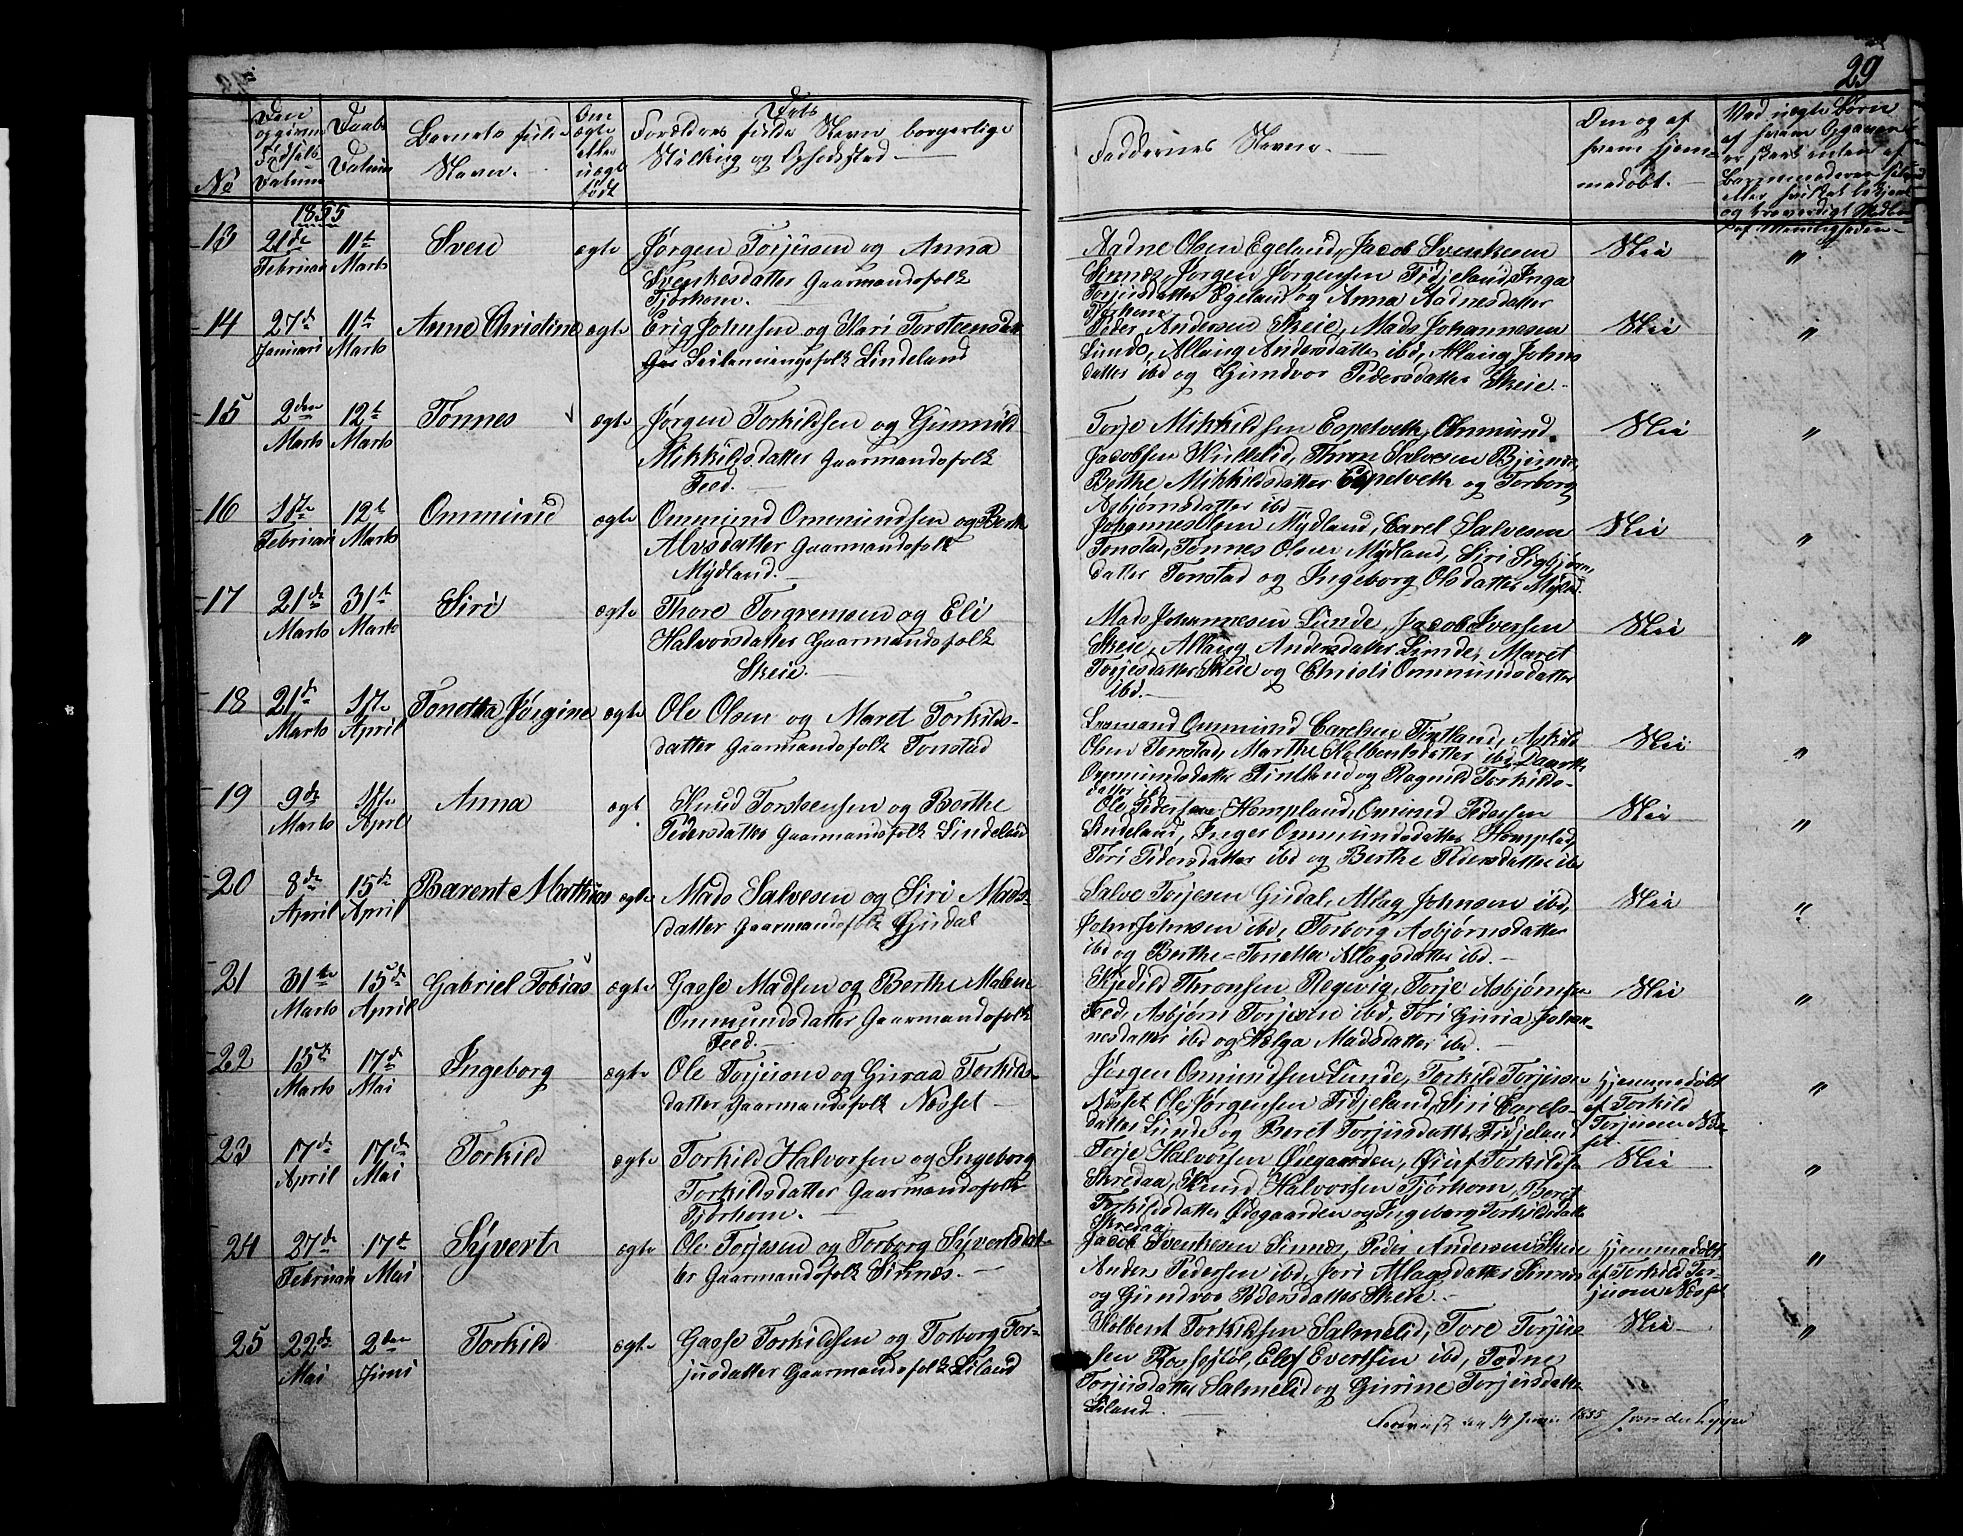 29
No
Den opgivne Fødsels Datum
Daabs Datum
Barnets fulde Navn.
Om ægte eller uægte født
Forældres fulde Navn borgerlige
Dets
Stilling og Opholdssted
Faddernes Navne.
Om og af hvem hjemmedøbt.
1855
13 21de Februari 11te Marts Sven ægte Jørgen Torjusen og Anna
Svenkesdatter Gaarmandsfolk
Tjørhom.
Aadne Olsen Egeland, Jacob Svenkesen
Sinnæs, Jørgen Jørgensen Fidjeland, Inga
Torjusdatter Egeland og Anna Aadnesdatter
Tjørhom
Nei "
14 27de Januari 11te Marts Anne Christine ægte Erig Johnsen og Kari Torsteensdat
Lindeland
Peder Andersen Skeie, Mads Johannesen
Lunde, Allaug Andersdatter ibd, Allaug Johns
datter ibd og Gundvor Pedersdatter Skeie.
Nei "
15 2den Marts 12te Marts Tønnes ægte Jørgen Torkildsen og Gunnild
Mikkilsdatter Gaarmandsfolk
Feed.
Torje Mikkildsen Espetveth, Ommund
Jacobsen Thron Salvesen
Berthe Mikkilsdatter Espetveth og Torborg
Asbjørnsdatter ibd
Nei "
16 1ste Februari 12te Marts Ommund ægte Ommund Ommundsen og Berthe
Alvsdatter Gaarmandsfolk
Mydland.
Johannes Olsen Mydland, Carel Salvesen
Tonstad, Tønnes Olsen Mydland, Siri Sigbjørns
datter Tonstad og Ingeborg Olsdatter Mydld.
Nei "
17 21de Marts 31te Marts Siri ægte Thore Torgremsen og Eli
Halvorsdatter Gaarmandsfolk
Skeie.
Mads Johannesen Lunde, Jacob Iversen
Skeie, Allaug Andersdatter Lunde, Maret
Torjesdatter Skeie og Christi Ommundsdatter
ibd.
Nei "
18 21de Marts 1ste April Tonetta Jørgine ægte Ole Olsen og Maret Torkilds-
datter Gaarmandsfolk Tonstad
Ommund Carelsen Fintland, Askild
Olsen Tonstad, Marthe Kolbentsdatter ibd
Ommundsdatter Fintland og Ragnild Torkilds-
datter ibd
Nei "
19 9de Marts 1ste April Anna ægt Knud Torsteensen og Berthe
Pedersdatter Gaarmandsfolk Lindeland
Ole Pedersen Hompland, Omund Pedersen
Lindeland, Inger Ommundsdatter Homplad,
Tori Pedersdatter ibd og Berthe Pedersdatter ibd
Nei "
20 8de April 15de April Barent Mathias ægte Mads Salvesen og Siri Mads-
datter Gaarmandsfolk Gjusdal
Salve Torjesen Gjusdal, Allag Johnsen ibd,
John Johnsen ibd, Torborg Asbjørnsdatter
ibd og Berthe Tonette Allagsdatter ibd.
Nei "
21 31te Marts 15de April Gabriel Tobias ægte Gasse Madsen og Berthe Malene
Ommundsdatter Gaarmandsfolk
Feed.
Skjedild Thronsen Regevig, Torje Asbjørnsen
Feed, Asbjørn Torjesen ibd, Tori Guria Johan-
nesdatter ibd og Helga Madsdatter ibd.
Nei "
22 15de Marts 17de Mai Ingeborg ægte Ole Torjusen og Guraa Torkilds-
datter Gaarmandsfolk Næsset
Jørgen Omundsen Lunde, Torkild Torjusen
Næsset Ole Jørgensen Fidjeland, Siri Carels-
datter Lunde og Beret Torjusdatter Fidjeland
Hjemmedøbt af Torkild Torjusen Næsset. "
23 17de April 17de Mai Torkild ægte Torkild Halvorsen og Ingeborg
Torkildsdatter Gaarmandsfolk
Tjørhom.
Torje Halvorsen Øiegaarden, Torkildsen
Skredaa, Knud Halvorsen Tjørhom, Beret
Torkildsdatter Ødegaarden og Ingeborg Torkildsdatter
Skredaa
Nei "
24 27de Februari 17de Mai Syvert ægte Ole Torjesen og Torborg Syvertsdat-
ter Gaarmandsfolk Sirknæs.
Jacob Svenkesen Sinnæs, Peder Andersen Skeie
Anders Pedersen ibd, Allagsdatter Sinnæs
og Gundvor Pedersdatter Skeie.
Hjemmedøbt af Torkild Torjusen Næsset "
25 22de Mai 2den Juni Torkild ægte Gasse Torkildsen og Torborg Tor-
jusdatter Gaarmandsfolk Liland
Kolbent Torkildsen Salmelid, Tore Torjus
sen Rosseføl, Elef Evertsen ibd, Todne
Torjusdatter Salmelid og Gurine Torjusdatter
Liland
Nei "
14 Juni 1855